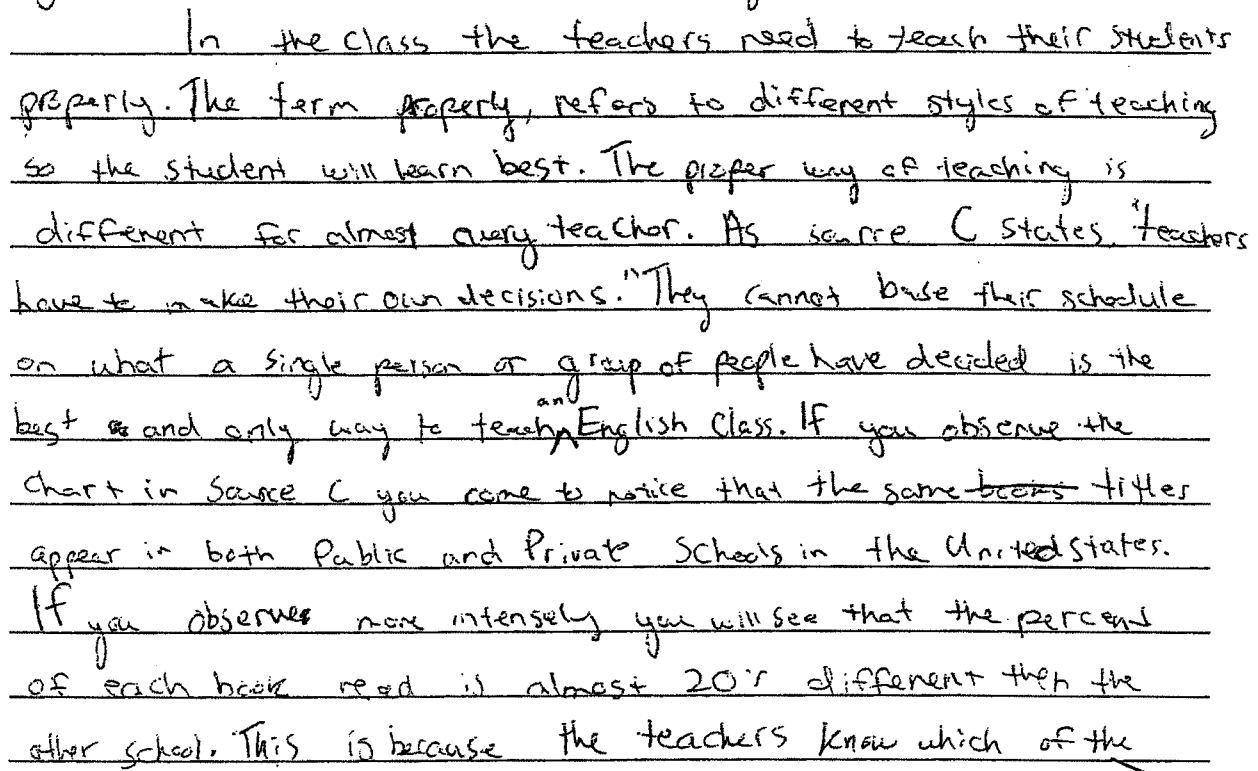 In the class the teachers need to teach their students
properly. The term properly, refers to different styles of teaching
so the student will learn best. The proper way of teaching is
different for almost every teacher. As source C states, "teachers
have to make their own decisions." They cannot base their schedule
on what a single person or group of people have decided is the
best and only way to teach an English Class. If you observe the
chart in Source C you come to notice that the same books titles
appear in both Public and Private Schools in the United States.
If you observe more intensely you will see that the percent
of each book read is almost 20% different then the
other school. This is because the teachers know which of the